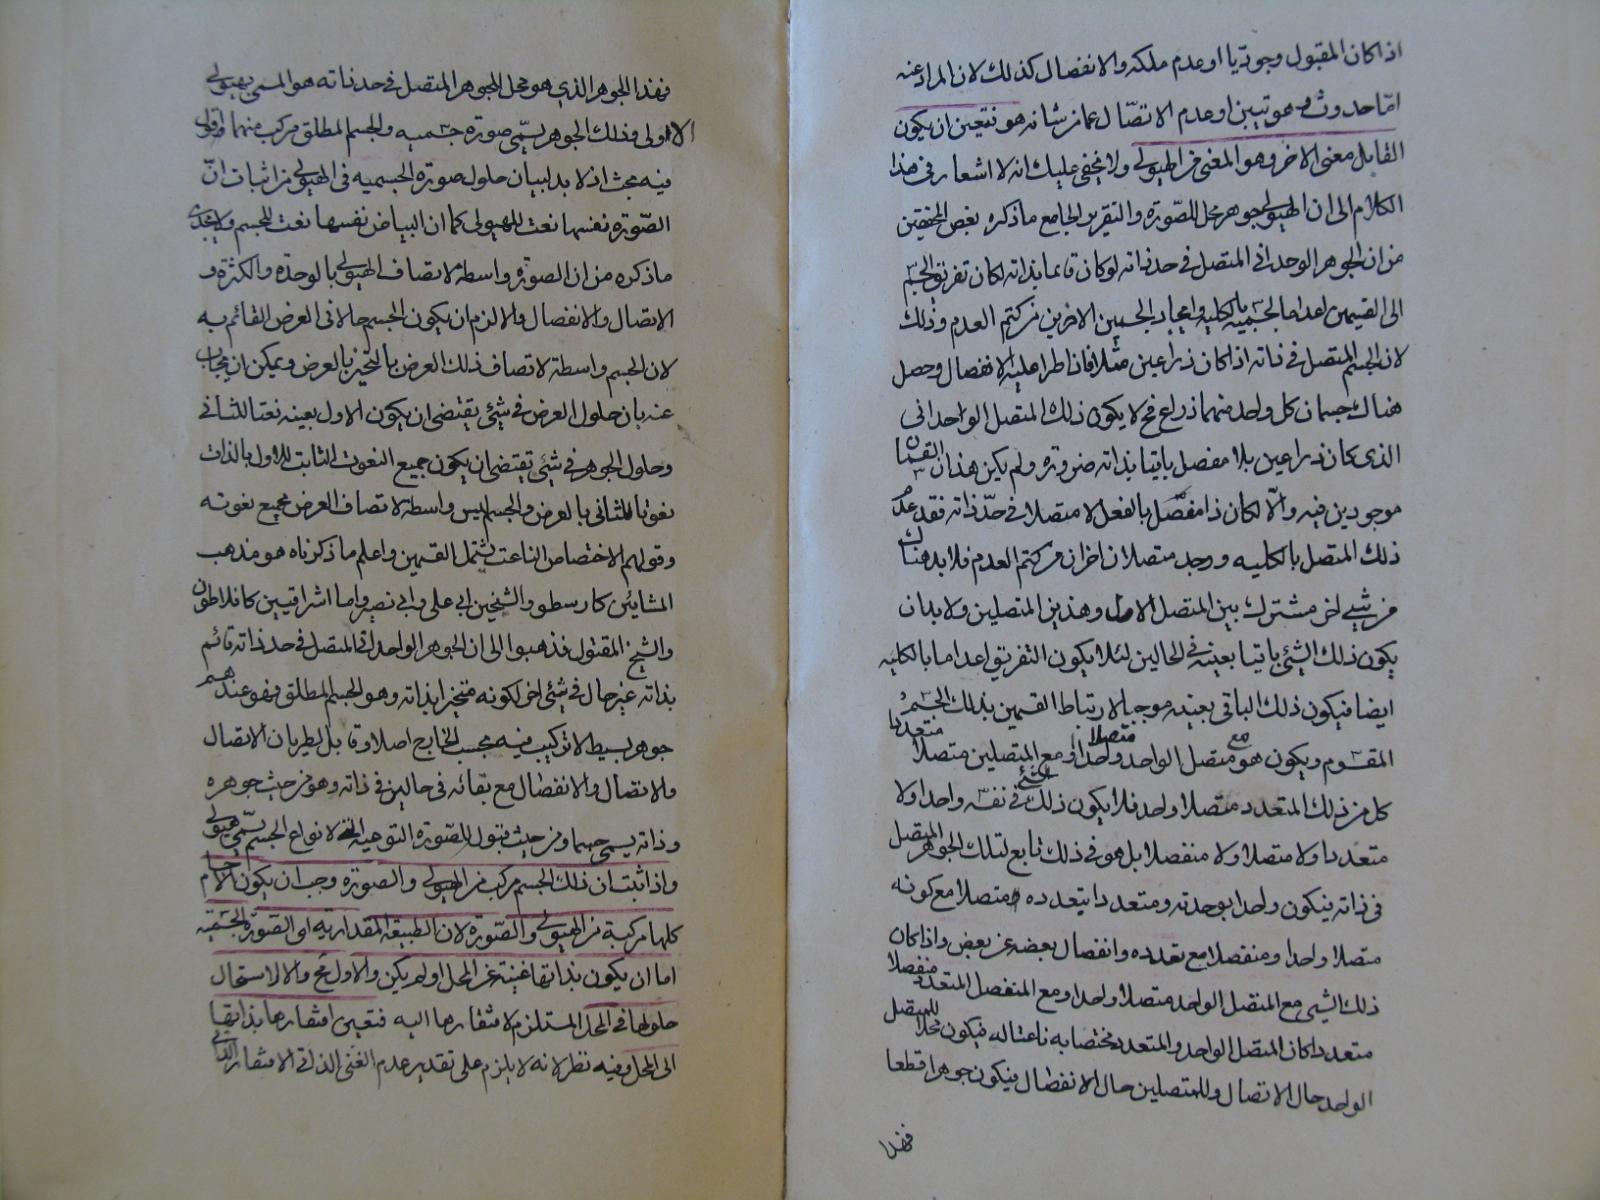 اذا كان المقبول وجوديا او عدم ملكه والانفصال كذلك لان المراد عنه
امّا حدوث هويتين او عدم الاتصّال عما من شانه هو فتعين ان يكون
القابل معنى الاخر وهو المعنى من الهيولى ولا يخفى عليك انه لا اشعار فى هذا
الكلام الى ان الهيولى جوهر محل للصّوره والتقرير الجامع ما ذكره بعض المحققين
من ان الجوهر الوحدانى المتصل فى حد ذاته لو كان قائما بذاته لكان تفريق الجسم
الى القسمين اعداما لجسميه بالكليه وايجاد الجسمين الاخرين من كتم العدم وذلك
لان الجسم المتصل فى ذاته اذا كان ذراعين مثلا فاذا طرا عليه الانفصال وحصل
هناك جسمان كل واحد منهما ذراع فح لا يكون ذلك المتصل الواحدانى
الذى كان ذراعين بلا مفصل باقيا بذاته ضروره ولم يكن هذان القسمان
موجودين فيه والّا لكان ذا مفصّل بالفعل لا متصلا فى حدّ ذاته فقد عدم
ذلك المتصل بالكليه ووجد متصلان اخران من كتم العدم فلا بد هناك
من شيى اخر مشترك بين المتصل الاول وهذين المتصلين ولا بد ان
يكون ذلك الشئ باقيا بعينه فى الحالين لئلا يكون التفريق اعداما بالكليه
ايضا فيكون ذلك الباقى بعينه موجبا لارتباط القسمين بذلك الجسم
المقسوم ويكون هو مع متصل الواحد واحدا متصلا ومع المتصلين متصلا متعددا
كل من ذلك المتعدد متصلا واحد فلا يكون ذلك الشئ فى نفسه واحدا ولا
متعددا ولا متصلا ولا منفصلا بل هو فى ذلك تابع لتلك الجوهر المتصل
فى ذاته فيكون واحدا بوحدته ومتعددا بتعدده متصلا مع كونه
متصلا واحدا ومنفصلا مع تعدده وانفصال بعضه عن بعض واذا كان
ذلك الشيى مع المتصل الواحد متصلا واحدا ومع المنفصل المتعدد منفصلا
متعددا كان المتصل الواحد والمتعدد مختصا به ناعتا له فيكون محلا للمتصل
الواحد حال الاتصال وللمتصلين حال الانفصال فيكون جوهرا قطعا
فهذا
فهذا الجوهر الذي هو محل للجوهر المتصل فى حد ذاته هو المسمى بهيولى
الاولى وذلك الجوهر يسمّى صوره جسميه والجسم المطلق مركب منهما وقولى
فيه بحث اذ لا بد لبيان حلول صورة الجسميه فى الهيولى من اثبات انّ
الصّوره نفسها نعت للهيولى كما ان البياض نفسها نعت للجسم ولا يجدى
ما ذكره من ان الصوره واسطه لاتصاف الهيولى بالوحده والكثره و
الاتصال والانفصال والا لزم ان يكون الجسم حالا فى العرض القائم به
لان الجسم واسطه لاتصاف ذلك العرض بالتحيز بالعرض ويمكن ان يجاب
عنه بان حلول العرض فى شئ يقتضى ان يكون الاول بعينه نعتا للثانى
وحلول الجوهر فى شئ يقتضى ان يكون جميع النعوت الثابت للاول بالذات
نعوتا للثانى بالعرض والجسم ليس واسطه لاتصاف العرض بجميع نعوته
وقولهم الاختصاص الناعت يشتمل القسمين واعلم ما ذكرناه هو مذهب
المشايئن كارسطو والشيخين ابى على وابى نصر واما اشراقيين كافلاطون
والشيخ المقتول فذهبوا الى ان الجوهر الواحدانى المتصل فى حد ذاته قائم
بذاته غير حال فى شئ اخر لكونه متحيزا بذاته وهو الجسم المطلق فهو عندهم
جوهر بسيط لا تركيب فيه بحسب الخارج اصلا وقابل لطريان الاتصال
والاتصال والانفصال مع بقائه فى حالين فى ذاته وهو من حيث جوهره
وذاته يسمى جسما ومن حيث قبول للصّوره النوعيه التى لانواع الجسم يسمّى هيولى
واذا ثبت ان ذلك الجسم مركب من الهيولى والصوره وجب ان يكون الاجسام
كلها مركبة من الهيولى والصّوره لان الطبيعة المقداريه اى الصّورة الجسميّه
اما ان يكون بذاتها غينة عن المحل او لم يكن والاول مح والا لاستحال
حلولها فى المحل المستلزم لافتقارها اليه فتعين افتقارها بذاتها
الى المحل وفيه نظر لانه لا يلزم على تقدير عدم الغنى الذاتى الافتقار الذاتى